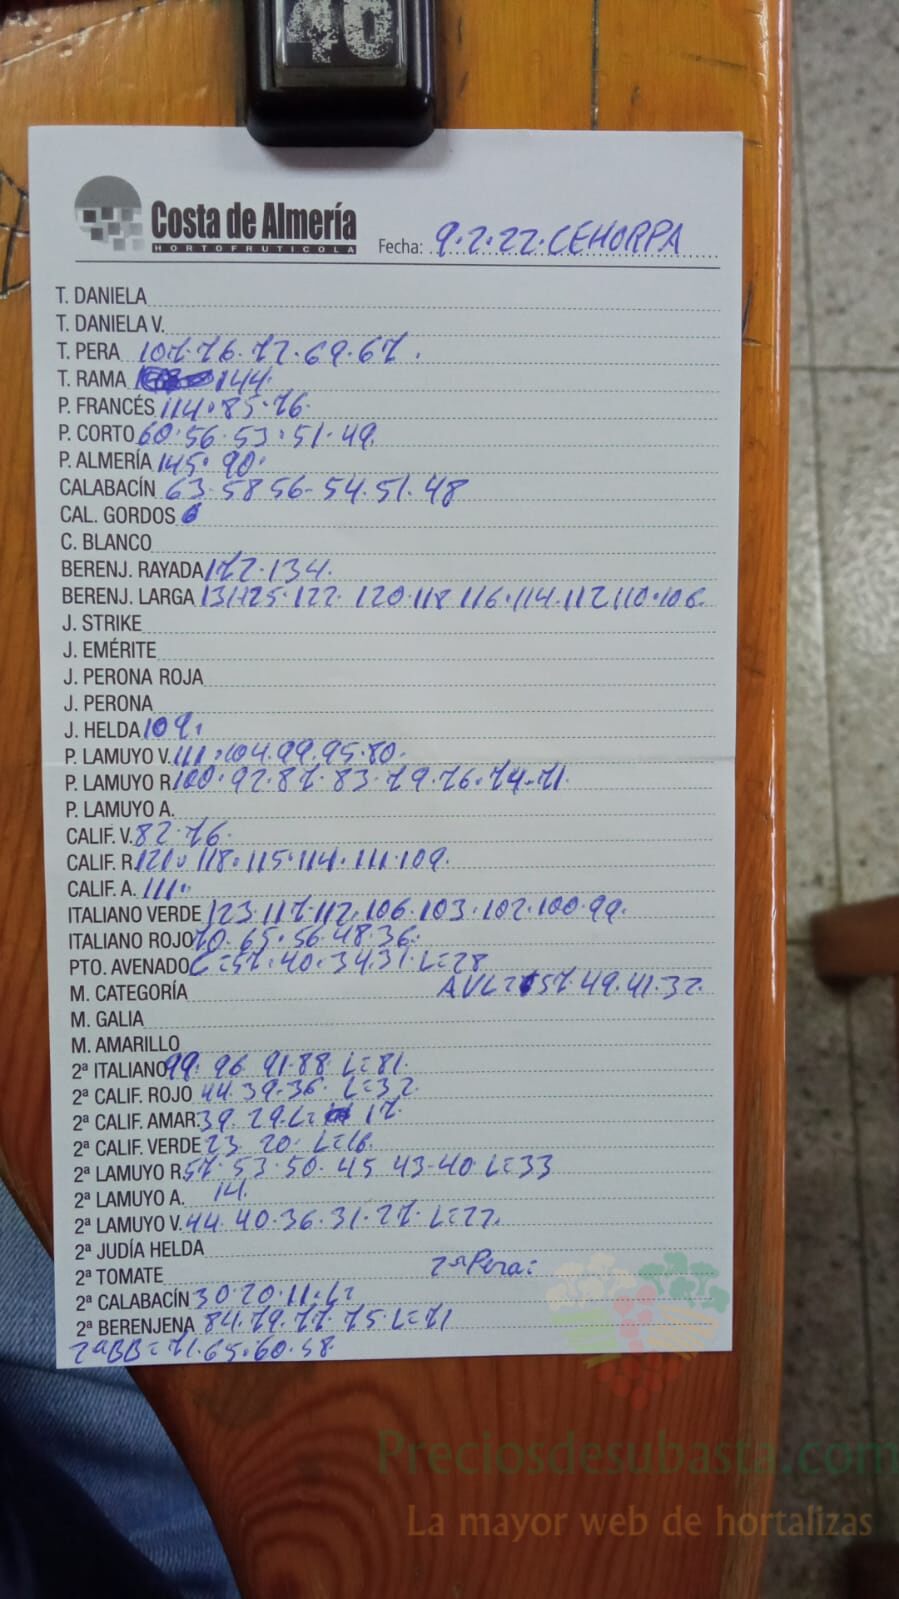 40
Costa de Almería
HORTOFRUTICOLA
Fecha: 9.2.22.CEHORPA
T. DANIELA
T. DANIELA V.
T. PERA 107.76.72.69.67.
T. RAMA 144.
P. FRANCÉS 114.85.76.
P. CORTO 60.56.53.51.49.
P. ALMERÍA 145.90.
CALABACÍN 63.58 56-54.51.48
CAL. GORDOS
C. BLANCO
BERENJ. RAYADA 172.134.
BERENJ. LARGA 131.125.122. 120.118 116.114.112.110.106.
J. STRIKE
J. EMÉRITE
J. PERONA ROJA
J. PERONA
J. HELDA 109.
P. LAMUYO V. 111.104.99.95.80.
P. LAMUYO R. 100.92.87.83.79.76.74.71.
P. LAMUYO A.
CALIF. V. 82.76.
CALIF. R. 118.115.114.111.109.
CALIF. A. 111.
ITALIANO VERDE 123.117.112.106.103.102.100.99.
ITALIANO ROJO 70.65.56.48.36.
PTO. AVENADO C=57.40.34.31.L=28
M. CATEGORÍA AVL= 57.49.41.32.
M. GALIA
M. AMARILLO
2ª ITALIANO 99. 96 91.88 L=81.
2ª CALIF. ROJO 44.39.36. L=32
2ª CALIF. AMAR. 39.29.L= 17.
2ª CALIF. VERDE 23 20. L=16.
2ª LAMUYO R. 57.53.50.45 43-40 L=33
2ª LAMUYO A. 14.
2ª LAMUYO V. 44.40.36.31.27. L=22.
2ª JUDÍA HELDA
2ª TOMATE 2ª Pera:
2ª CALABACÍN 30.20.11.L=
2ª BERENJENA 84.79.77.75.L=71
2ªBB=71.65.60.58.
Preciosdesubasta.com
La mayor web de hortalizas